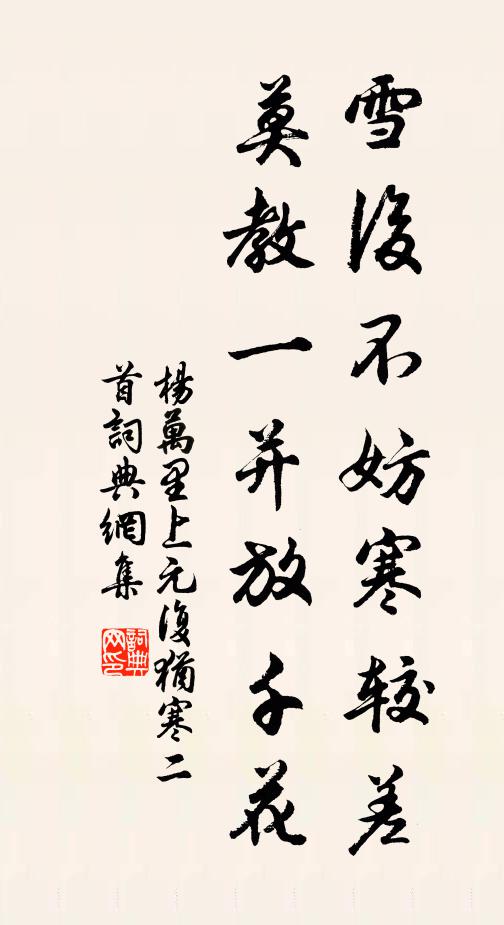 雪後不妨寒較差
莫教一并放千花
楊萬里上元復猶寒二
首詞典網集
詞典
网印